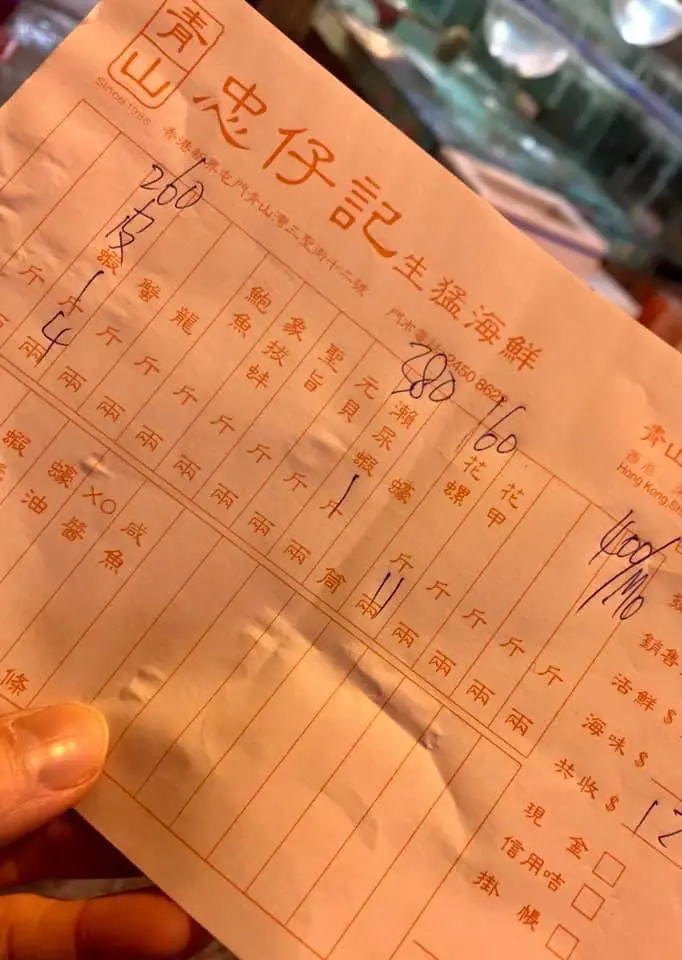 青山
忠仔記生猛海鮮
香港新界屯門青山灣三聖街十二號
260
皮蝦 1斤 4兩
蟹 斤 兩
龍 斤 兩
斤 兩
鮑魚 斤 兩
象拔蚌 斤 兩
聖旨 斤 兩
元貝
280
瀨尿蝦 1斤
160
蠔 斤 兩
花螺 斤 兩
花甲 斤 兩
斤 兩
斤 兩
蠔油
XO醬
咸魚
條
青山
香港
Hong Kong
400
銷售
活鮮 $
海味 $
共收 $ 12
現金
信用咭
掛帳